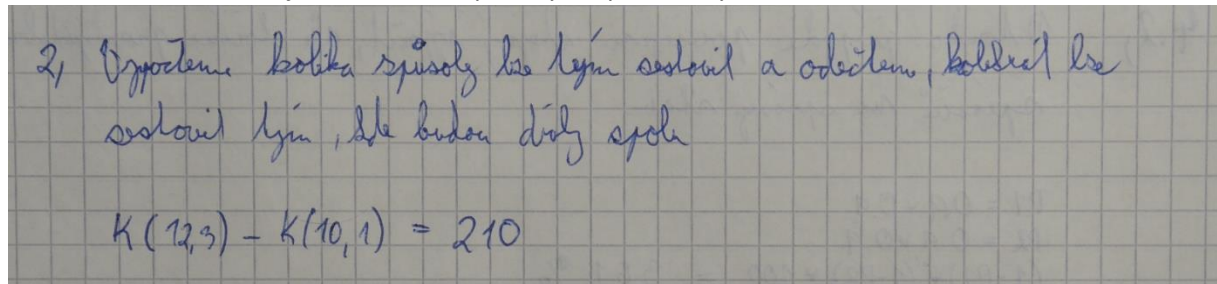 2, Vypočteme kolika způsoby lze tým sestavit a odečteme, kolikrát lze
sestavit tým, kde budou dívky spolu
K(12,3) - K(10,1) = 210